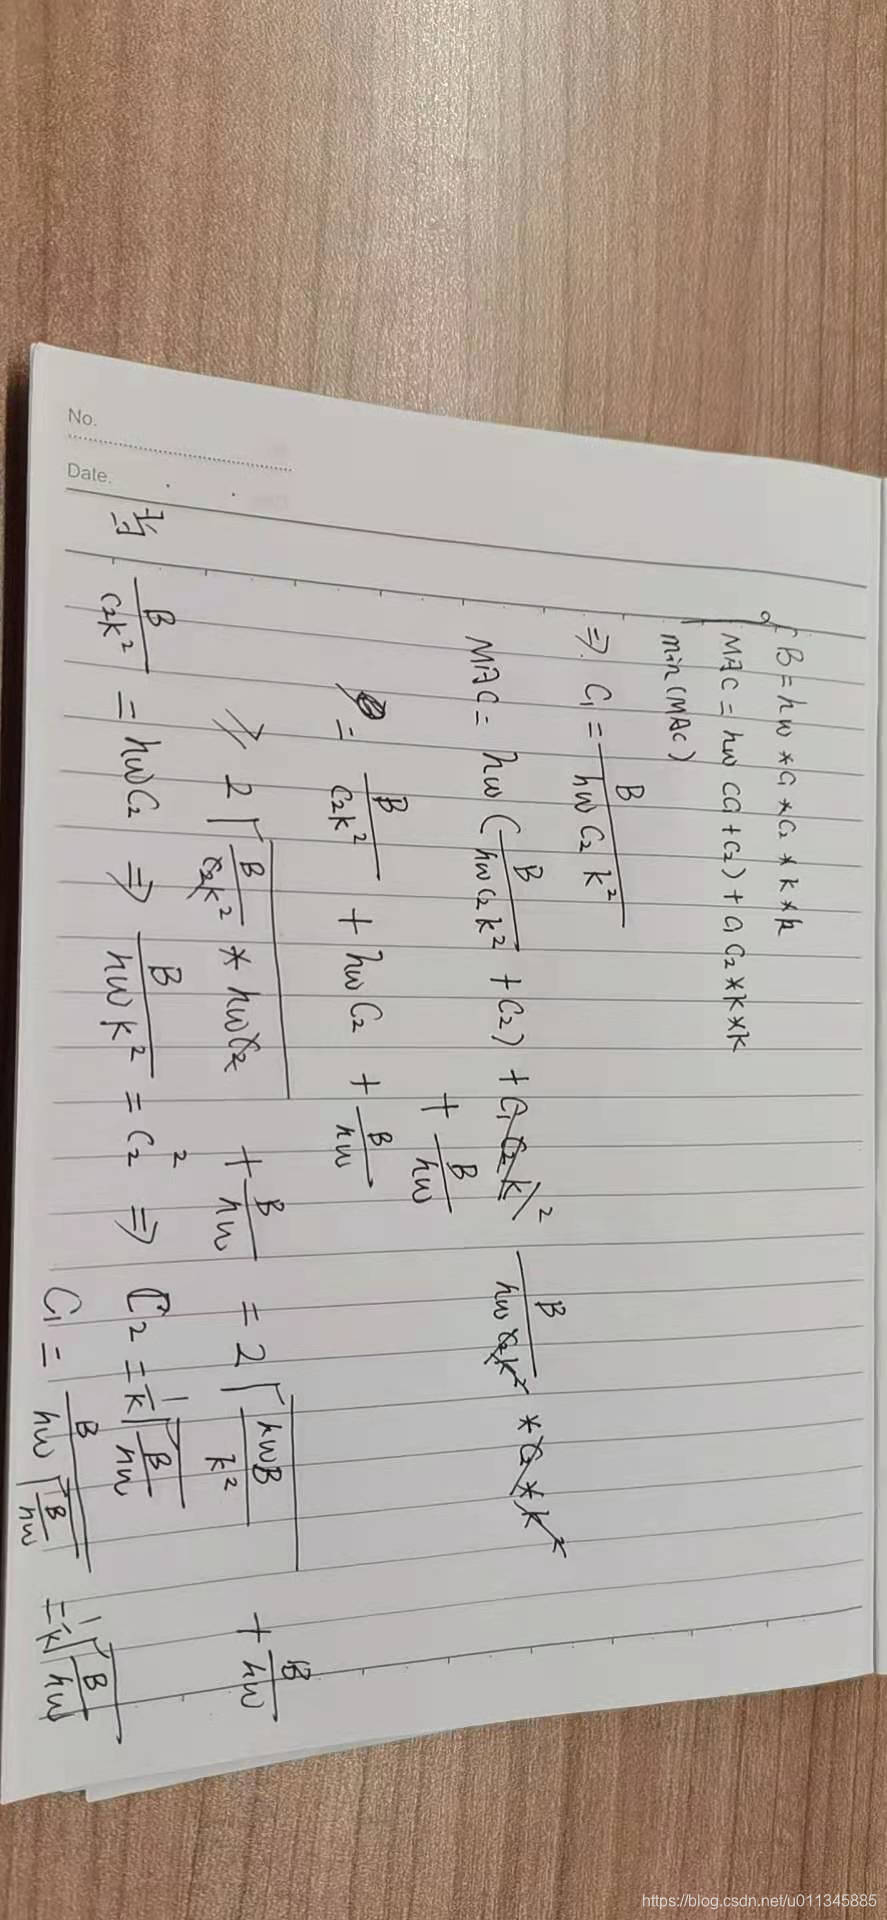 No.
Date.
B = hw * C1 * C2 * k * k
MAC = hw (C1 + C2) + C1 C2 * k * k
min (MAC)
⇒ C1 = B / (hw C2 k²)
MAC = hw ( B / (hw C2 k²) + C2 ) + C1 C2 k² B / (hw C2 k²) * C2 * k²
+ B / hw
= B / (C2 k²) + hw C2 + B / hw
≥ 2 √( B / (C2 k²) * hw C2 ) + B / hw = 2 √( hwB / k² ) + B / hw
当 B / (C2 k²) = hw C2 ⇒ B / (hw k²) = C2² ⇒ C2 = 1/k √( B / hw )
C1 = B / ( hw √( B / hw ) ) = 1/k √( B / hw )
https://blog.csdn.net/u011345885